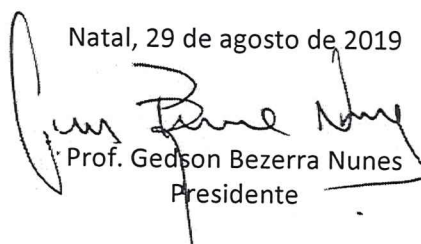 Natal, 29 de agosto de 2019
Prof. Gedson Bezerra Nunes
Presidente